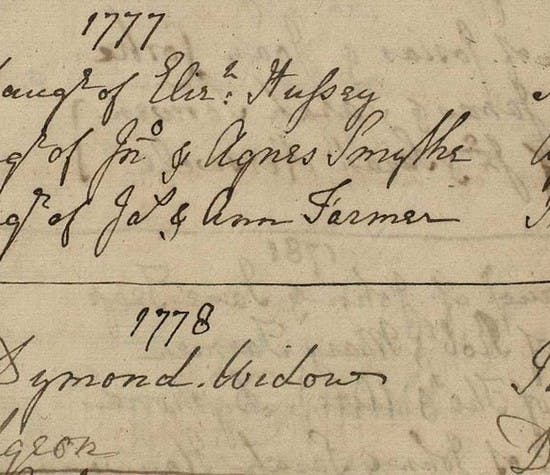 1777
Daugr. of Elizh: Hussey
gr. of Jno & Agnes Smythe
gr. of Jas & Ann Farmer
1778
Dymond. Widow
geon